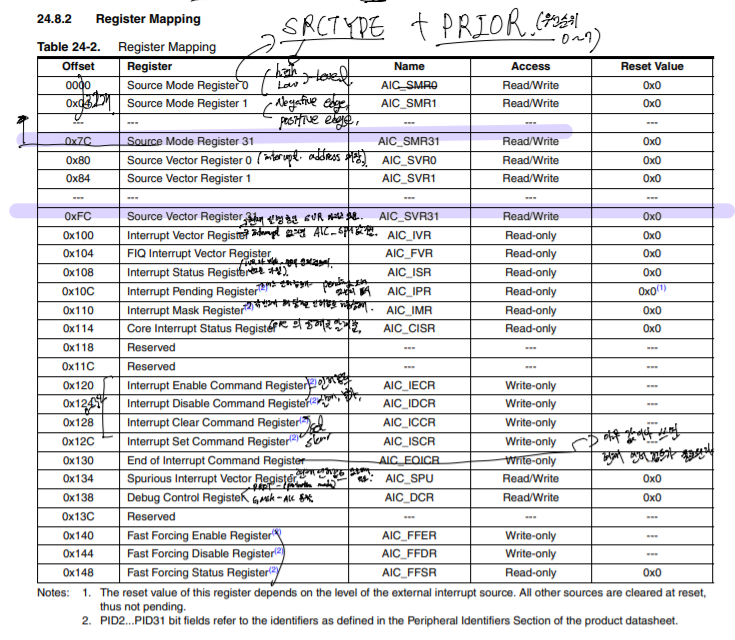 24.8.2 Register Mapping
SRCTYPE + PRIOR. (우선순위 0~7)
Table 24-2. Register Mapping
Offset Register Name Access Reset Value
0000 Source Mode Register 0 AIC_SMR0 Read/Write 0x0
0x04 Source Mode Register 1 AIC_SMR1 Read/Write 0x0
high
Low
level
Negative edge,
positive edge,
--- --- --- --- ---
0x7C Source Mode Register 31 AIC_SMR31 Read/Write 0x0
0x80 Source Vector Register 0 (interrupt. address 저장) AIC_SVR0 Read/Write 0x0
0x84 Source Vector Register 1 AIC_SVR1 Read/Write 0x0
--- --- --- --- ---
0xFC Source Vector Register 31 AIC_SVR31 Read/Write 0x0
0x100 Interrupt Vector Register AIC_IVR Read-only 0x0
0x104 FIQ Interrupt Vector Register AIC_FVR Read-only 0x0
0x108 Interrupt Status Register AIC_ISR Read-only 0x0
0x10C Interrupt Pending Register(2) pending AIC_IPR Read-only 0x0(1)
0x110 Interrupt Mask Register(2) AIC_IMR Read-only 0x0
0x114 Core Interrupt Status Register AIC_CISR Read-only 0x0
0x118 Reserved --- --- ---
0x11C Reserved --- --- ---
0x120 Interrupt Enable Command Register(2) AIC_IECR Write-only ---
0x124 Interrupt Disable Command Register(2) AIC_IDCR Write-only ---
0x128 Interrupt Clear Command Register(2) AIC_ICCR Write-only ---
0x12C Interrupt Set Command Register(2) AIC_ISCR Write-only ---
0x130 End of Interrupt Command Register AIC_EOICR Write-only ---
0x134 Spurious Interrupt Vector Register AIC_SPU Read/Write 0x0
0x138 Debug Control Register AIC_DCR Read/Write 0x0
0x13C Reserved --- --- ---
0x140 Fast Forcing Enable Register(2) AIC_FFER Write-only ---
0x144 Fast Forcing Disable Register(2) AIC_FFDR Write-only ---
0x148 Fast Forcing Status Register(2) AIC_FFSR Read-only 0x0
Notes: 1. The reset value of this register depends on the level of the external interrupt source. All other sources are cleared at reset,
thus not pending.
2. PID2...PID31 bit fields refer to the identifiers as defined in the Peripheral Identifiers Section of the product datasheet.